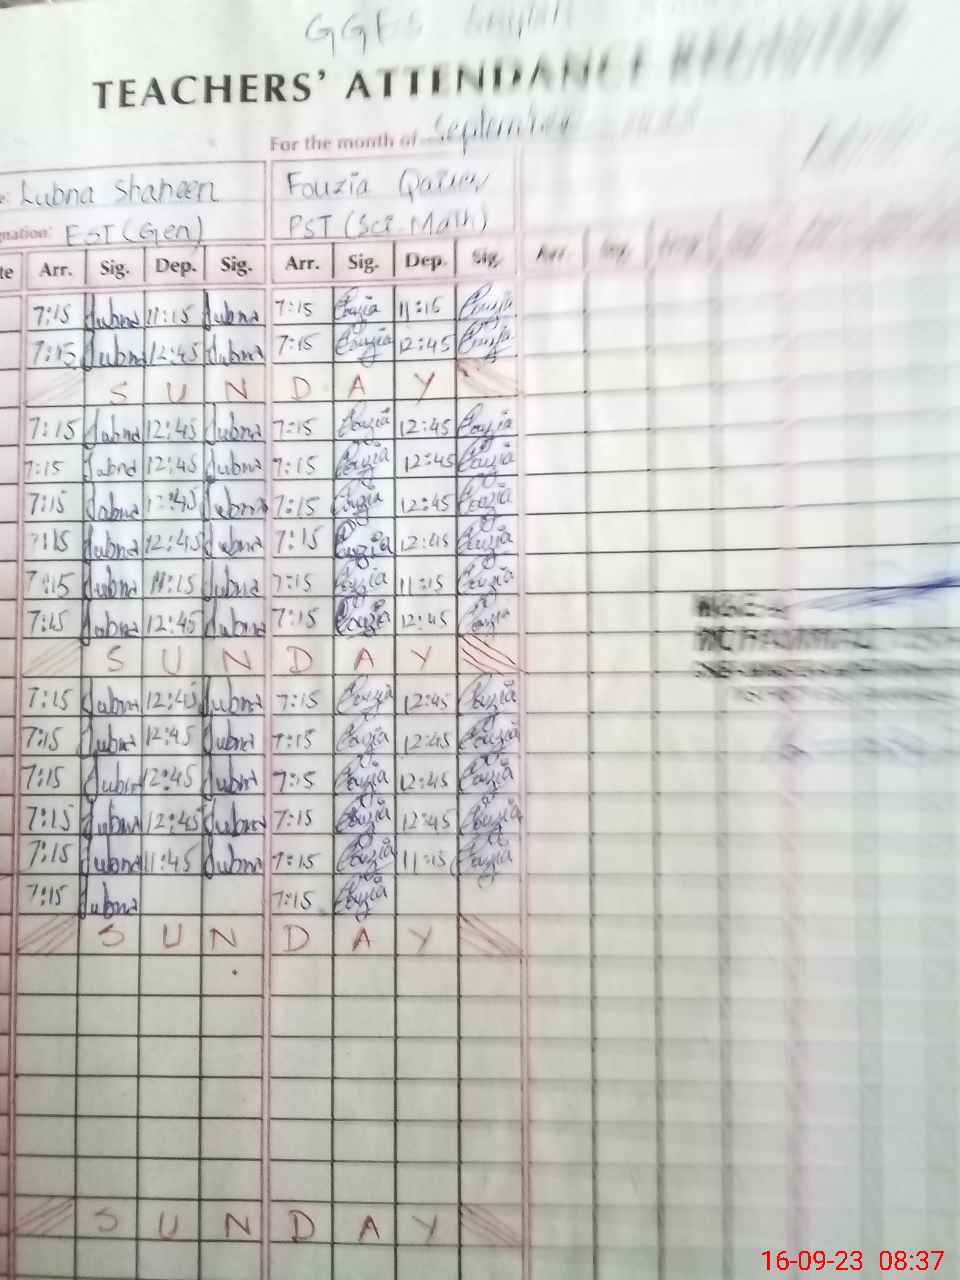 GGES
TEACHERS' ATTENDANCE REGISTER
For the month of September
Lubna Shaheen Fouzia
gnation: EST (Gen) PST (Sci-Math)
te Arr. Sig. Dep. Sig. Arr. Sig. Dep. Sig. Arr. Sig.
7:15 Lubna 11:15 Lubna 7:15 Fouzia 11:15 Fouzia
7:15 Lubna 12:45 Lubna 7:15 Fouzia 12:45 Fouzia
S U N D A Y
7:15 Lubna 12:45 Lubna 7:15 Fouzia 12:45 Fouzia
7:15 Lubna 12:45 Lubna 7:15 Fouzia 12:45 Fouzia
7:15 Lubna 12:45 Lubna 7:15 Fouzia 12:45 Fouzia
7:15 Lubna 12:45 Lubna 7:15 Fouzia 12:45 Fouzia
7:15 Lubna 11:15 Lubna 7:15 Fouzia 11:15 Fouzia
7:15 Lubna 12:45 Lubna 7:15 Fouzia 12:45 Fouzia
S U N D A Y
7:15 Lubna 12:45 Lubna 7:15 Fouzia 12:45 Fouzia
7:15 Lubna 12:45 Lubna 7:15 Fouzia 12:45 Fouzia
7:15 Lubna 12:45 Lubna 7:15 Fouzia 12:45 Fouzia
7:15 Lubna 12:45 Lubna 7:15 Fouzia 12:45 Fouzia
7:15 Lubna 11:45 Lubna 7:15 Fouzia 11:15 Fouzia
7:15 Lubna 7:15 Fouzia
S U N D A Y
S U N D A Y
16-09-23 08:37